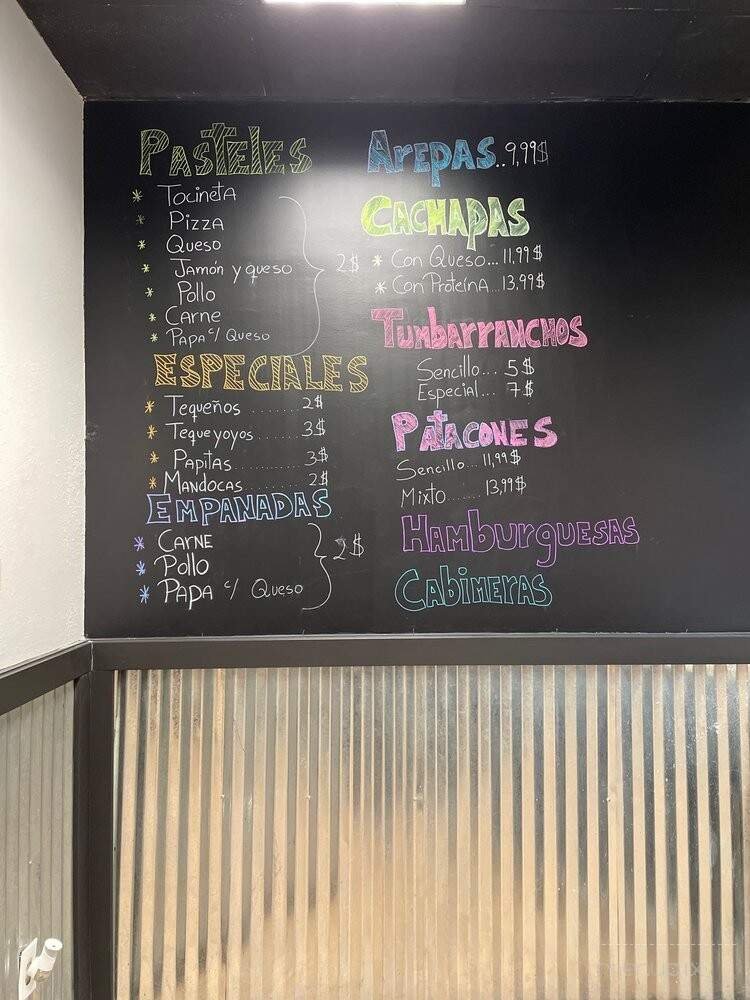 Pasteles
* Tocineta
* Pizza
* Queso
* Jamón y queso
* Pollo
* Carne
* Papa c/ Queso
2$
ESPECIALES
* Tequeños ........ 2$
* Tequeyoyos ....... 3$
* Papitas .......... 3$
* Mandocas ........ 2$
EMPANADAS
* Carne
* Pollo
* Papa c/ Queso
2$
Arepas..9,99$
CACHAPAS
* Con Queso... 11,99$
* Con Proteína... 13,99$
Tumbarranchos
Sencillo... 5$
Especial... 7$
PATACONES
Sencillo... 11,99$
Mixto....... 13,99$
HamburguesAS
Cabimeras